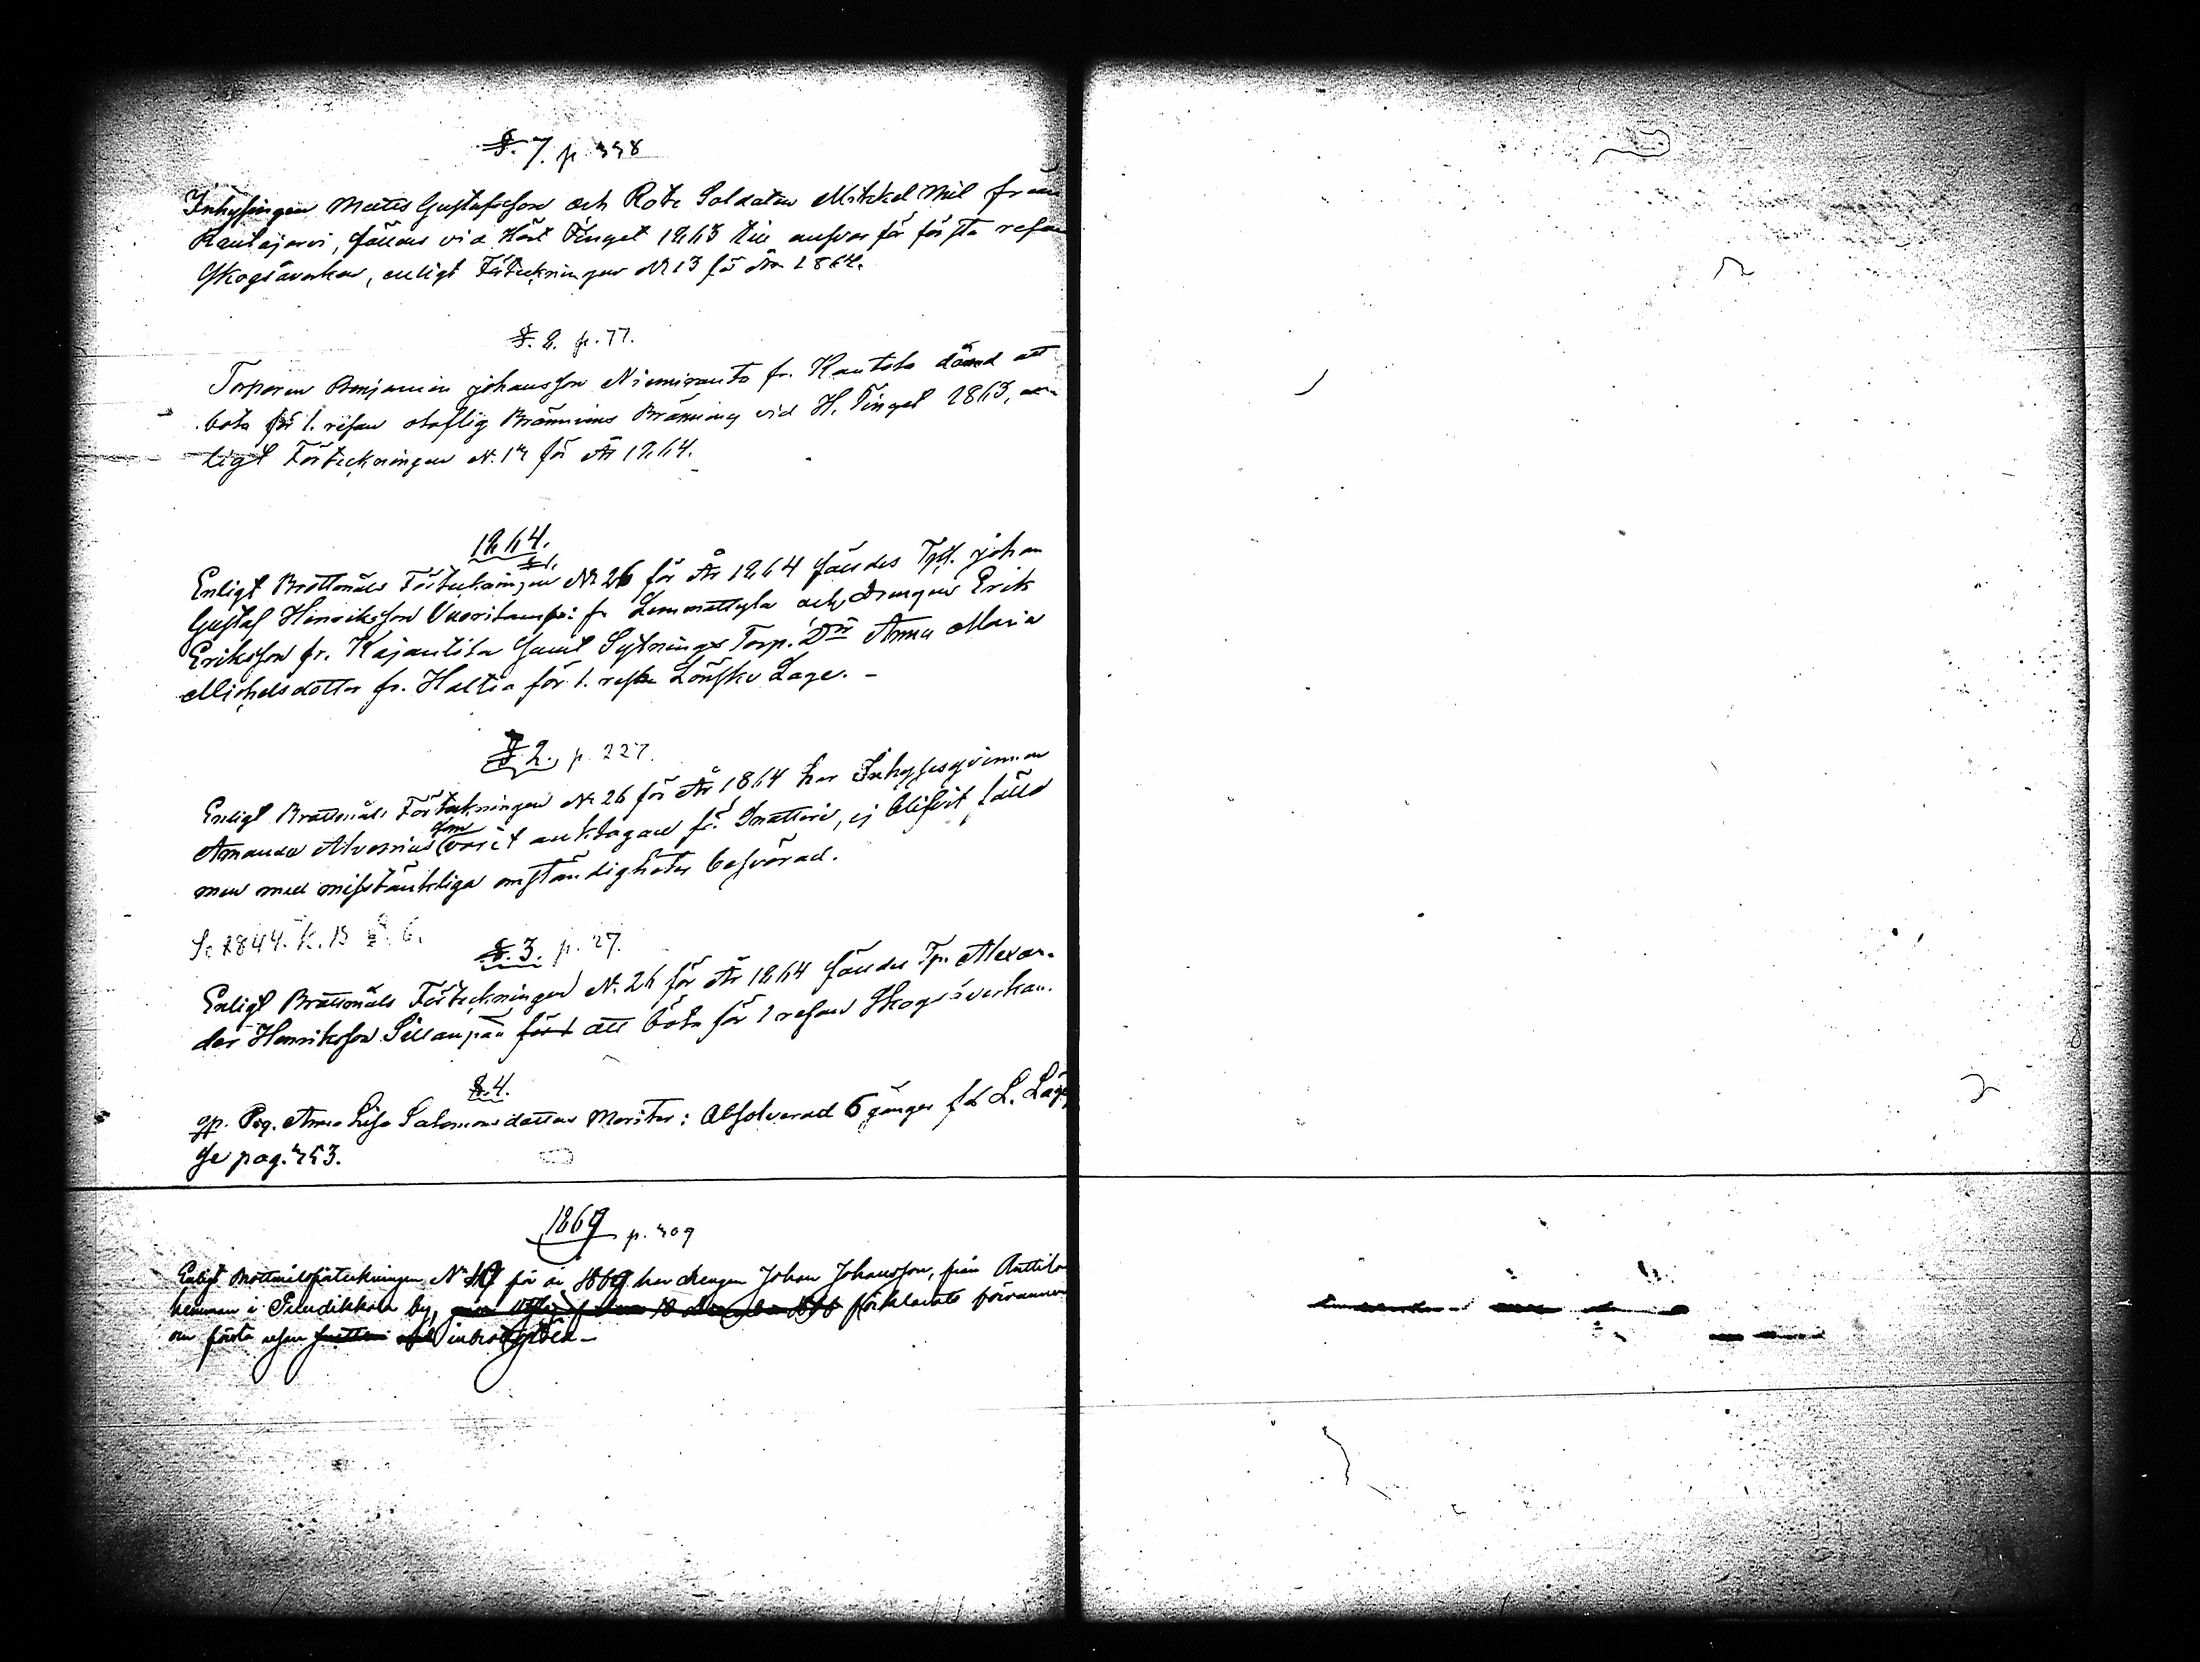 §. 7. p. 338
Inhysingen Matts Gustafsson och Rote Soldaten Mickel Mil från
Rautajärvi, fälldes vid Höst Tinget 1863 till ansvar för första resan
Skogsåverkan, enligt Förteckningen N. 13 för År 1864.
§. 8. p. 77.
Torparen Benjamin Johansson Niemirauta fr. Kautola dömd att
böta för 1. resan olaflig Bränvins Bränning vid H. Tinget 1863, en-
ligt Förteckningen N. 13 för År 1864.
1864.
§ 1.
Enligt Brottmåls Förteckningen N. 26 för År 1864 fälldes Johan
Gustaf Henriksson Vuorilampi fr. Lemmettylä och Drengen Erik
Eriksson fr. Kajantila samt Sytnings Torp. Dtr Anna Maria
Michelsdotter fr. Haltia för 1. resan Lönska Läge. -
§ 2. p. 227.
Enligt Brottmåls Förteckningen N. 26 för År 1864 har Inhysesqvinnan
Amanda Alvenius som varit anklagad för Snatteri, ej blifvit fälld
men med misstänkliga omständigheter besvärad.
Se 1844. K. 13 §. 6.
§. 3. p. 27.
Enligt Brottmåls Förteckningen N. 26 för År 1864 fälldes Tp. Alexan-
der Henriksson Sillanpää för att böta för 1 resan Skogsåverkan.
§. 4.
Pig. Anna Lisa Salomonsdotter Moritz: Absolverad 6 gånger f. L. Läge
Se pag. 453.
1869 p. 309
Enligt Brottmålsförteckningen N. för år 1869 har drengen Johan Johansson, från Anttila
hemman i by, förklarats förvunnen
om första resan inbrottsstöld. -